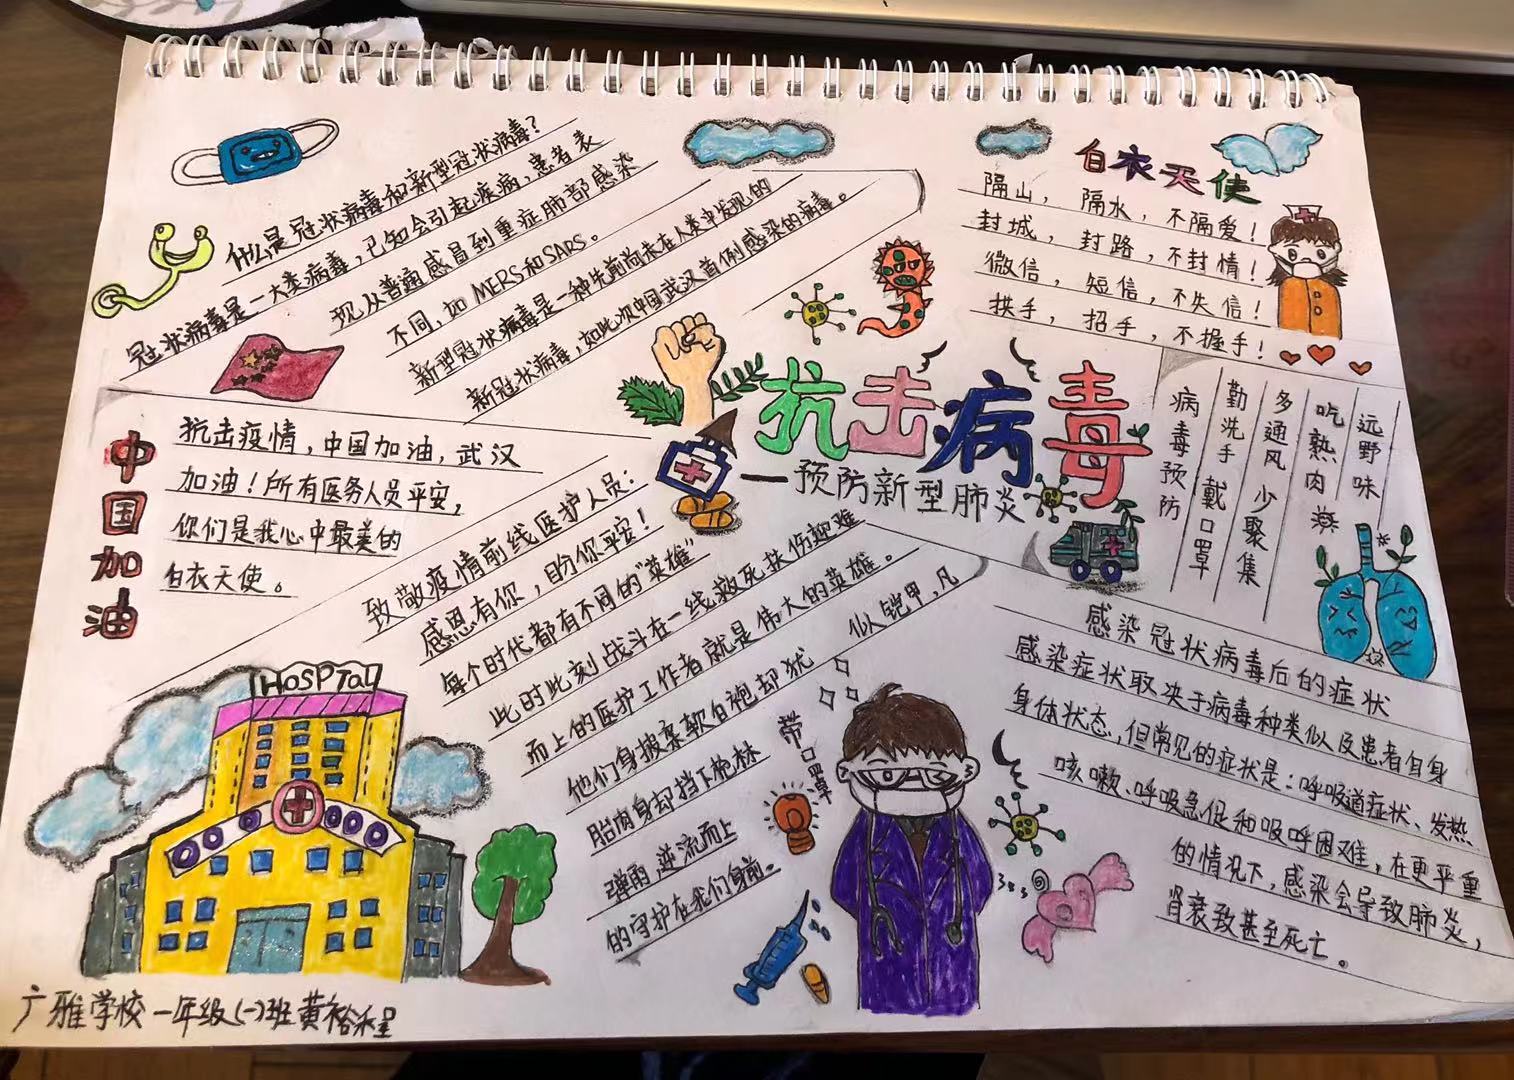 什么是冠状病毒和新型冠状病毒？
冠状病毒是一大类病毒，已知会引起疾病，患者表
现从普通感冒到重症肺部感染
不同，如MERS和SARS。
新型冠状病毒是一种先前尚未在人类中发现的
新冠状病毒，如此次中国武汉首例感染的病毒。
白衣天使
隔山，隔水，不隔爱！
封城，封路，不封情！
微信，短信，不失信！
拱手，招手，不握手！
抗击病毒
一预防新型肺炎
病毒预防
勤洗手 戴口罩
多通风 少聚集
吃熟肉
远野味
中国加油
抗击疫情，中国加油，武汉
加油！所有医务人员平安，
你们是我心中最美的
白衣天使。
致敬疫情前线医护人员：
感恩有你，盼你平安！
每个时代都有不同的“英雄”
此时此刻战斗在一线救死扶伤迎难
而上的医护工作者就是伟大的英雄。
他们身披柔软白袍却犹 似铠甲，凡
胎肉身却挡下枪林
弹雨逆流而上
的守护在我们身前。
感染冠状病毒后的症状
感染症状取决于病毒种类似及患者自身
身体状态，但常见的症状是：呼吸道症状、发热
咳嗽、呼吸急促和吸呼困难，在更严重
的情况下，感染会导致肺炎，
肾衰致甚至死亡。
带口罩
HOSPITaL
广雅学校一年级(一)班黄裕程